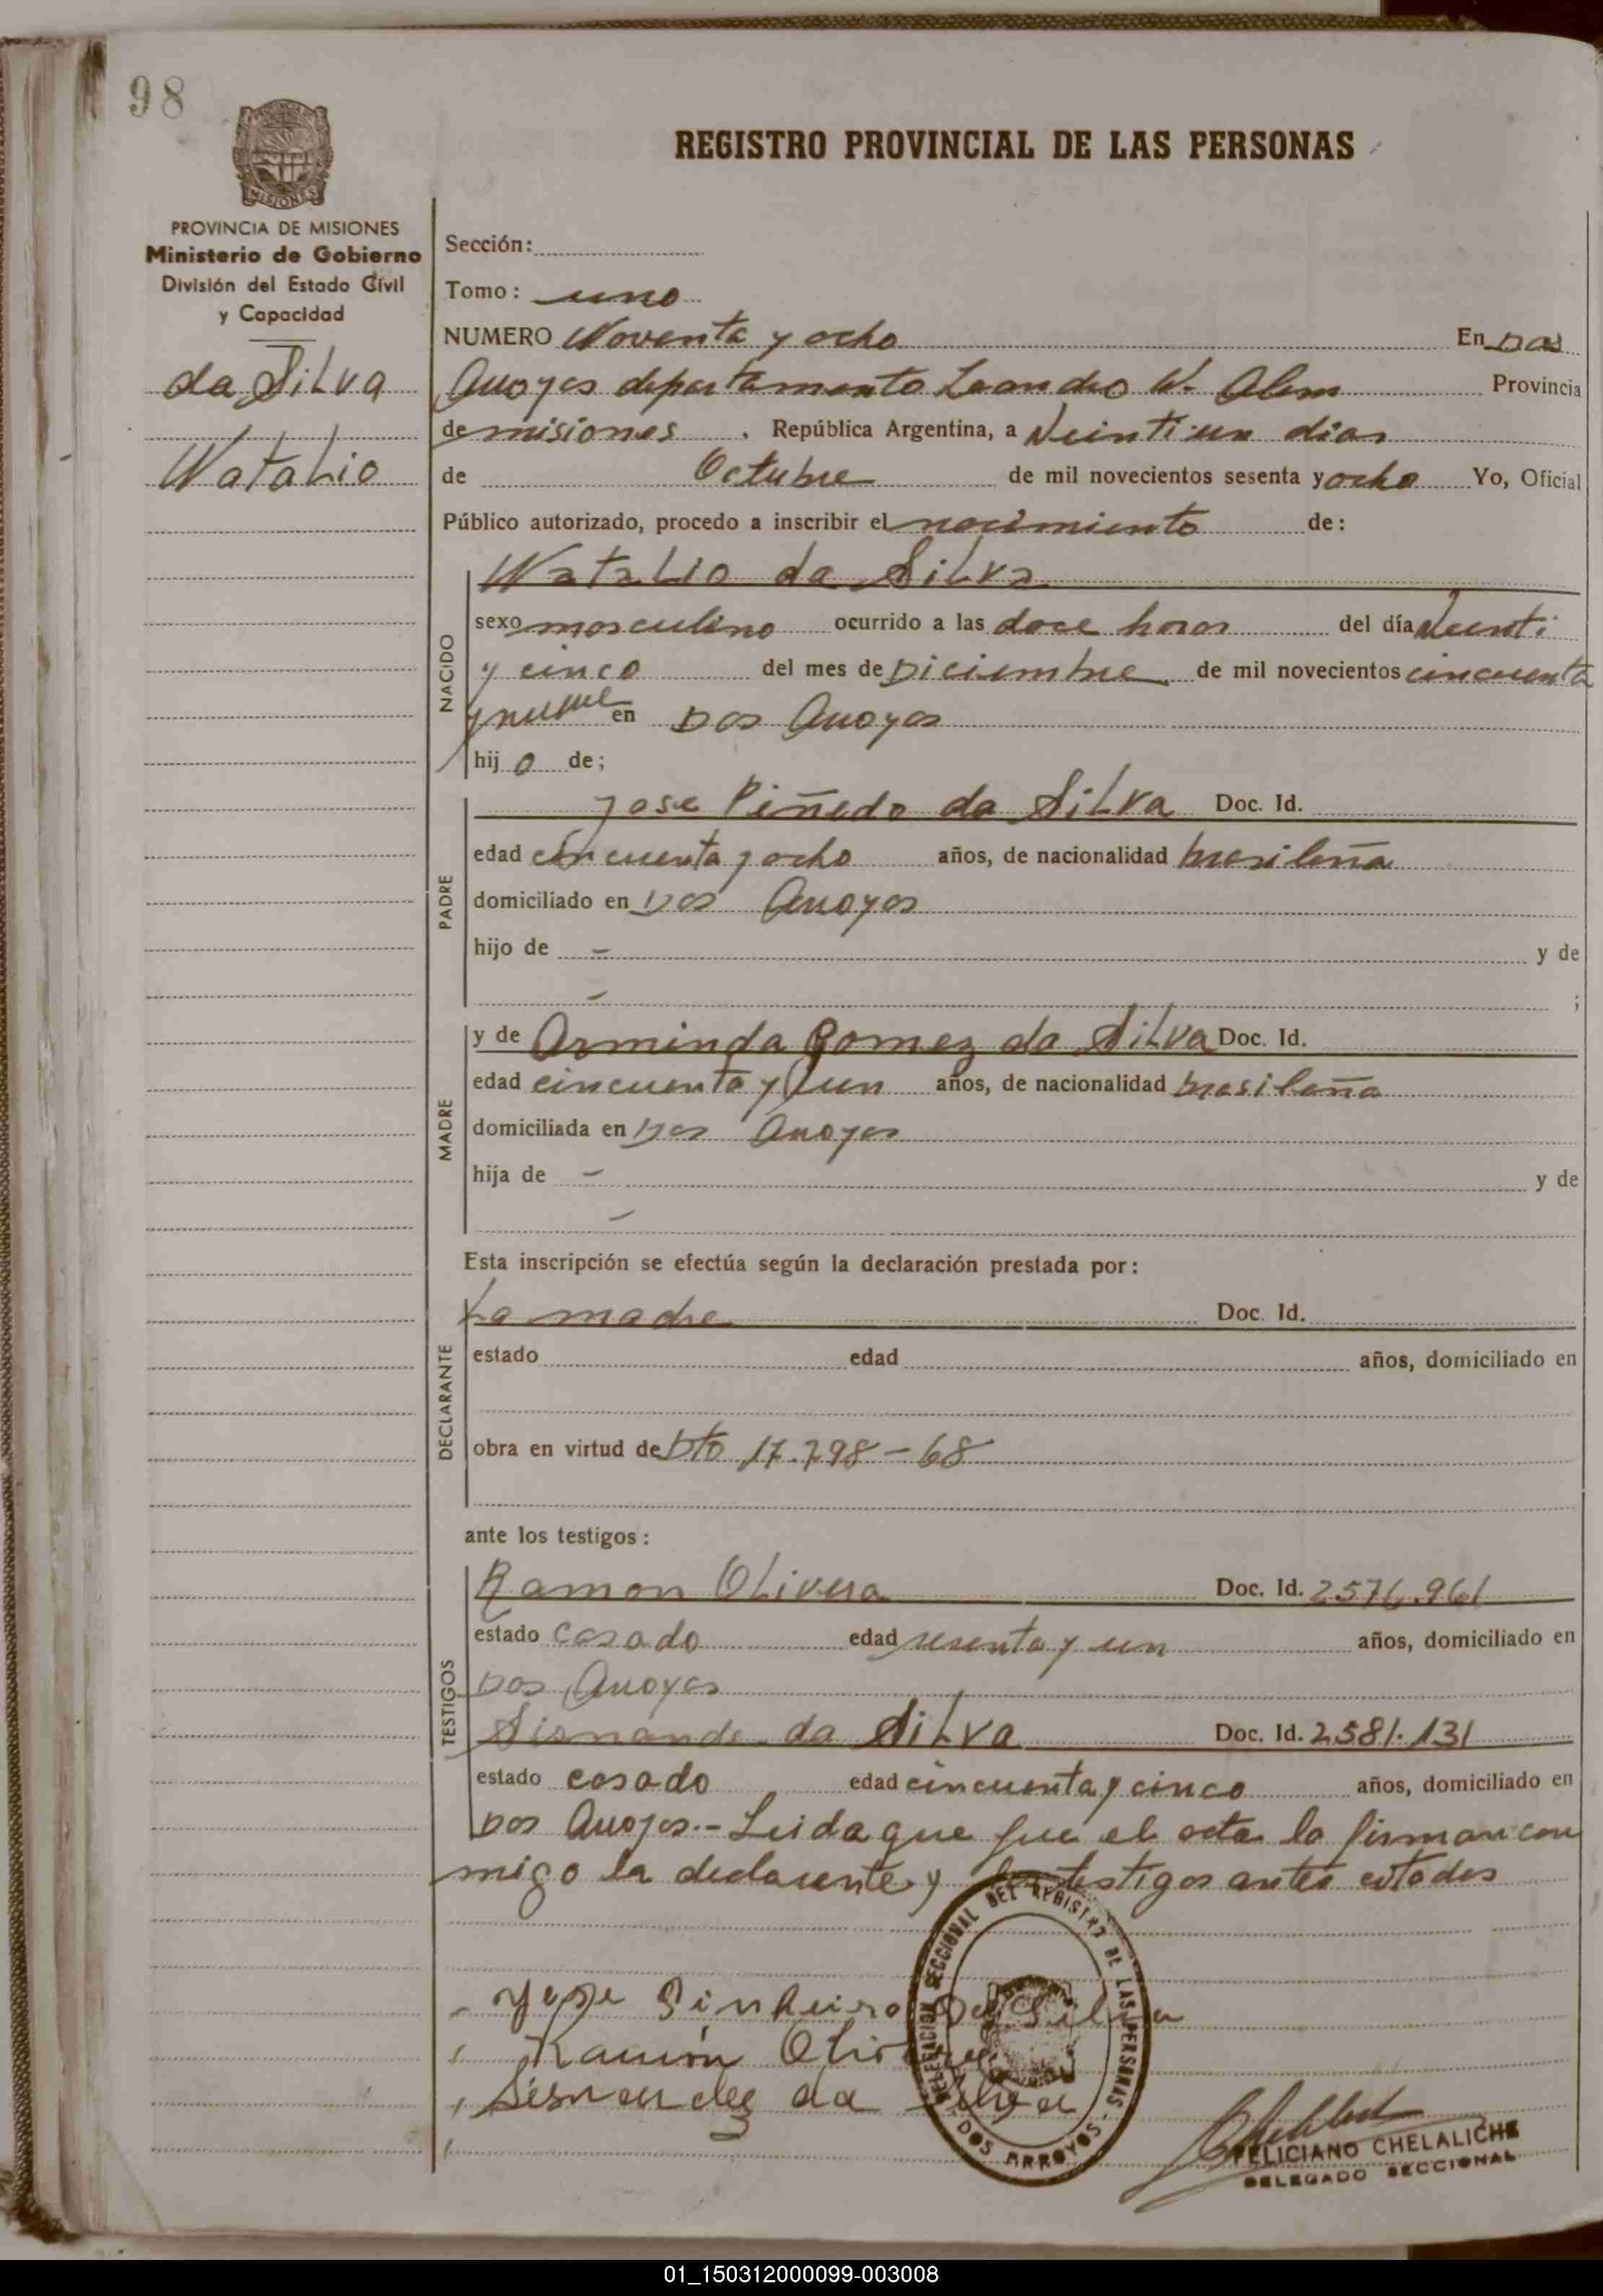 98
REGISTRO PROVINCIAL DE LAS PERSONAS
PROVINCIA DE MISIONES
Ministerio de Gobierno
División del Estado Civil
y Capacidad
da Silva
Natalio
Sección:
Tomo: uno
NUMERO Noventa y ocho En Dos
Arroyos departamento Leandro N. Alem Provincia
de misiones, República Argentina, a Veinti un dias
de Octubre de mil novecientos sesenta y ocho Yo, Oficial
Público autorizado, procedo a inscribir el nacimiento de:
NACIDO
Natalio da Silva
sexo masculino ocurrido a las doce horas del día Veinti
y cinco del mes de Diciembre de mil novecientos cincuenta
y nueve en Dos Arroyos
hij o de;
PADRE
Jose Piñedo da Silva Doc. Id.
edad cincuenta y ocho años, de nacionalidad brasileña
domiciliado en Dos Arroyos
hijo de - y de
- ;
MADRE
y de Arminda Gomez da Silva Doc. Id.
edad cincuenta y un años, de nacionalidad brasileña
domiciliada en Dos Arroyos
hija de - y de
-
Esta inscripción se efectúa según la declaración prestada por:
DECLARANTE
La madre Doc. Id.
estado edad años, domiciliado en
obra en virtud de Dto 17.798-68
ante los testigos:
TESTIGOS
Ramon Olivera Doc. Id. 2576.961
estado casado edad sesenta y un años, domiciliado en
Dos Arroyos
Sisnande da Silva Doc. Id. 2581.131
estado casado edad cincuenta y cinco años, domiciliado en
Dos Arroyos.- Leida que fue el acta la firman con
migo la declarante y los testigos antes citados
Jose Pinheiro Da Silva
Ramón Olivera
Sisnandez da Silva
DELEGACION SECCIONAL DEL REGISTRO DE LAS PERSONAS
DOS ARROYOS
FELICIANO CHELALICHE
DELEGADO SECCIONAL
01_150312000099-003008